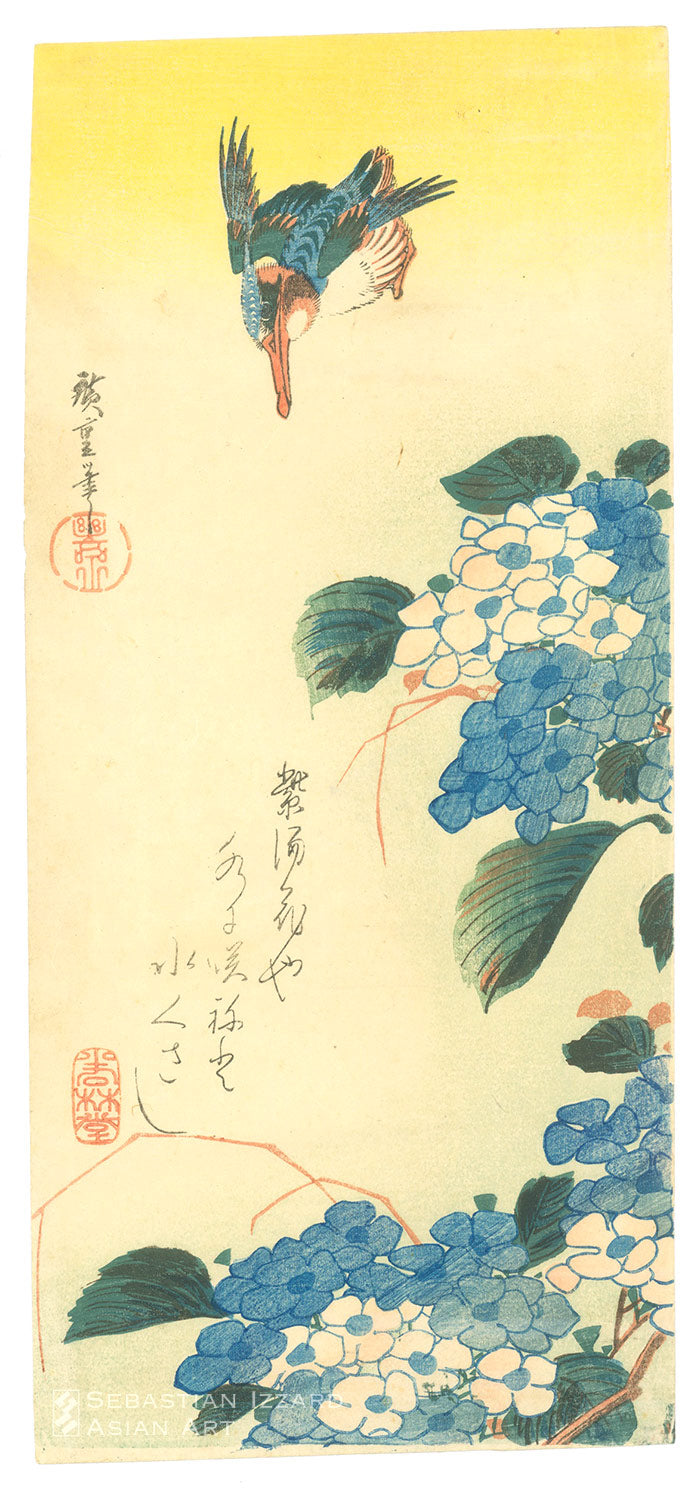 廣重筆
紫陽花や
水に咲ねと
水くさし
SEBASTIAN IZZARD
ASIAN ART